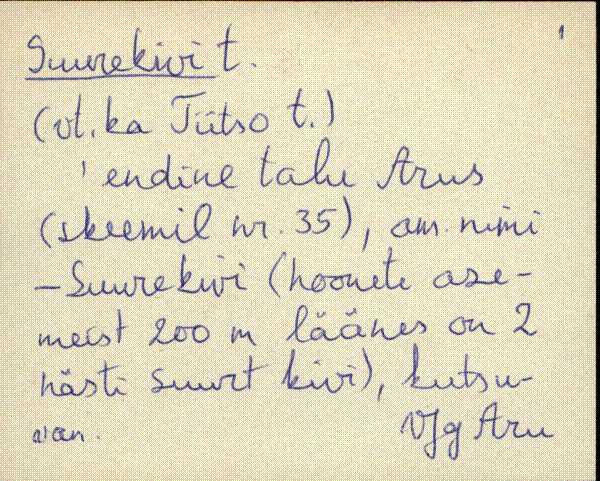 1
Suurekivi t.
(vt. ka Tiitso t.)
' endine talu Arus
(skeemil nr. 35), am. nimi
- Suurekivi (hoonete ase-
meist 200 m läänes on 2
hästi suurt kivi), kutsu-
Vjg Aru